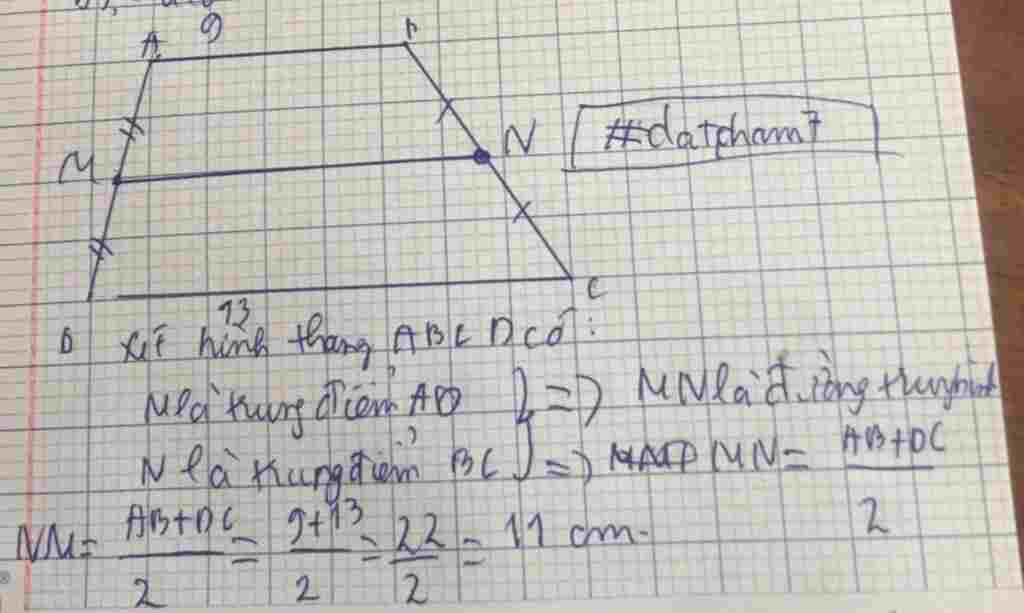 9
A B
M N #datcham7
C
13
D Xét hình thang ABCD có:
M là trung điểm AD } => MN là đường trung bình
N là trung điểm BC } => MN = AB+DC / 2
NM = AB+DC / 2 = 9+13 / 2 = 22 / 2 = 11 cm.